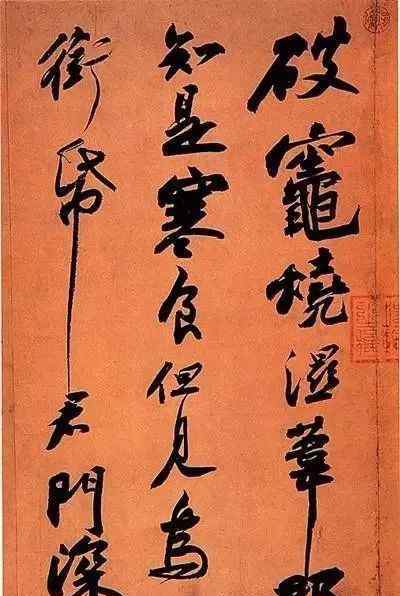 破竈燒溼葦
知是寒食但見烏
銜帋君門深